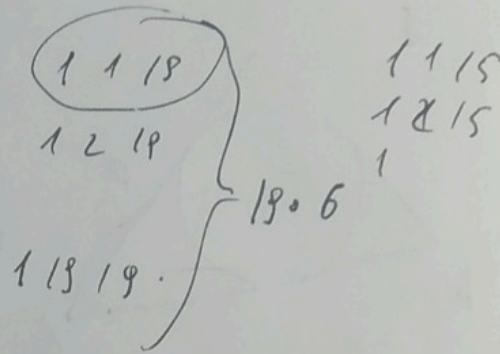 1 1 19
1 2 19
19 . 6
1 19 19 .
1 1 15
1 2 15
1